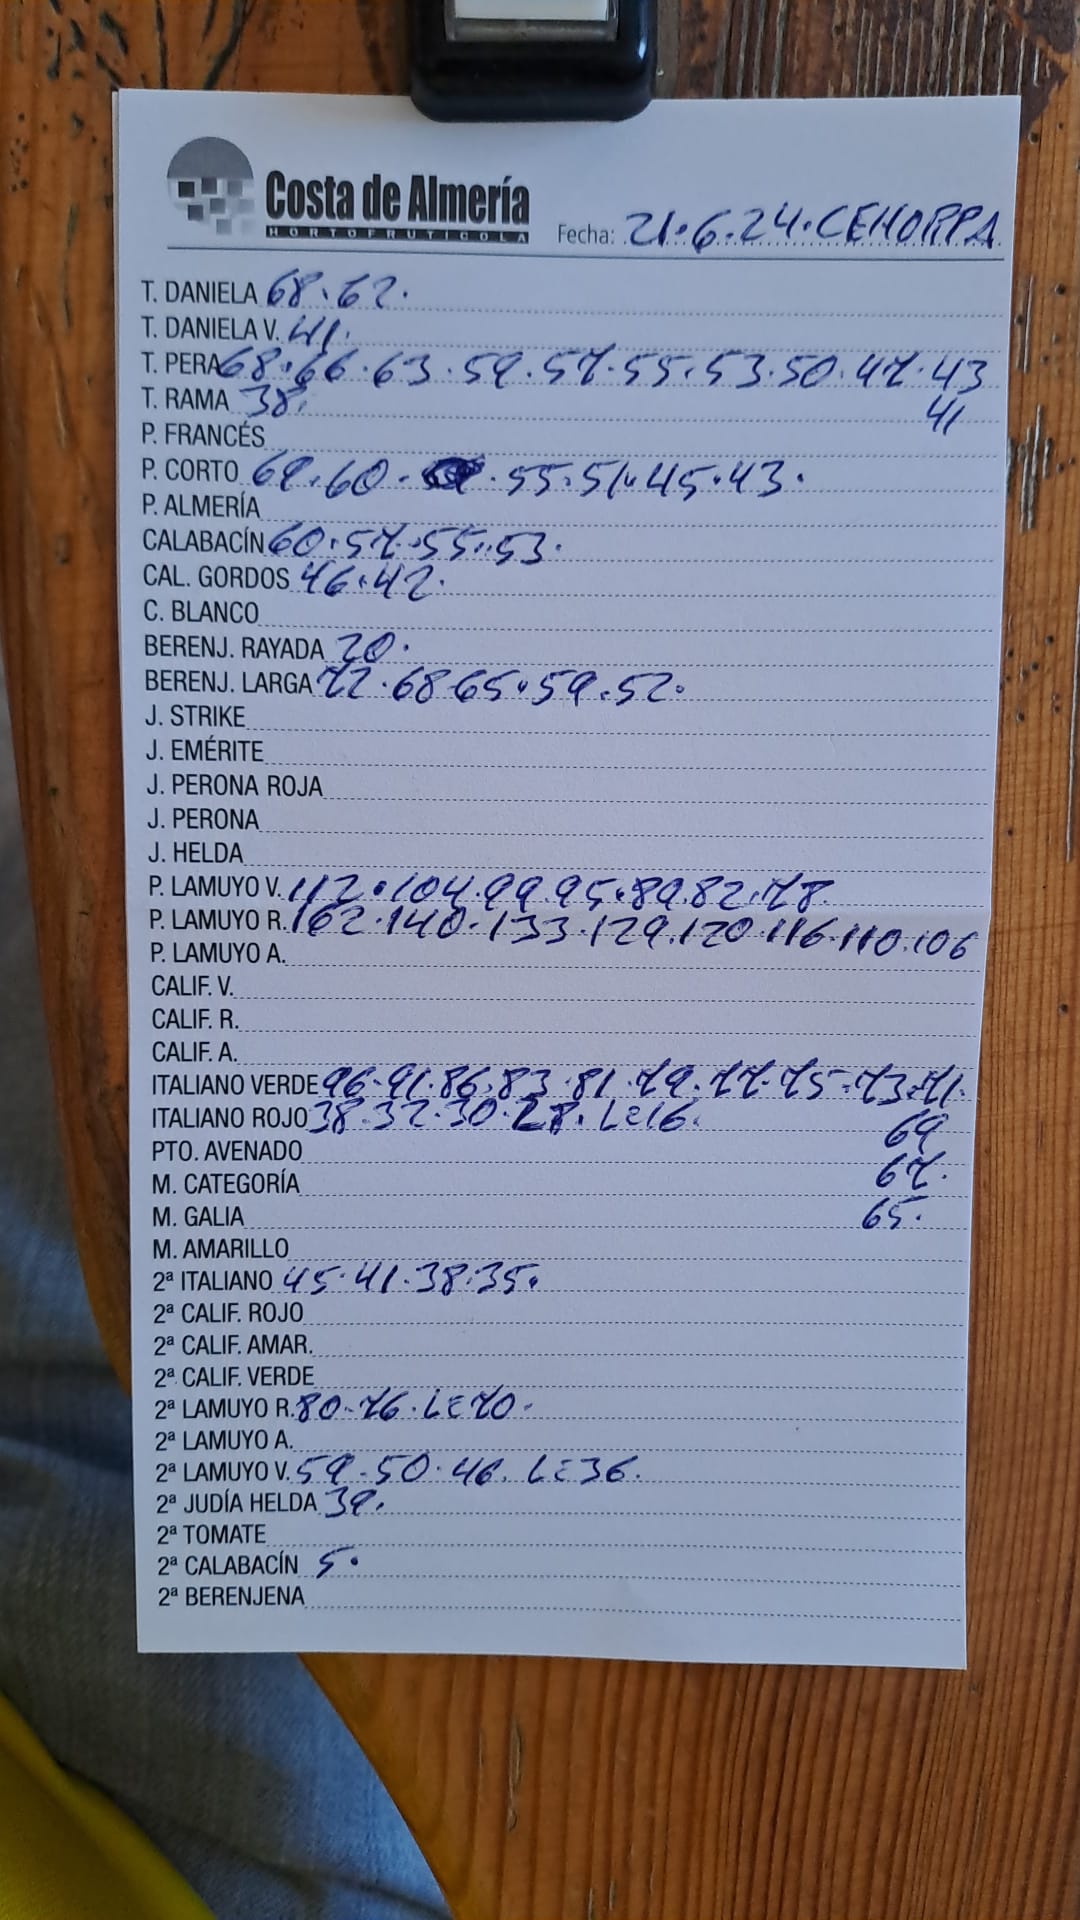 Costa de Almería
HORTOFRUTICOLA
Fecha: 21.6.24.CEHORPA
T. DANIELA 68.62.
T. DANIELA V. 41.
T. PERA 68.66.63.59.57.55.53.50.47.43
41
T. RAMA 38.
P. FRANCÉS
P. CORTO 69.60. .55.51.45.43.
P. ALMERÍA
CALABACÍN 60.57.55.53.
CAL. GORDOS 46.42.
C. BLANCO
BERENJ. RAYADA 20.
BERENJ. LARGA 72.68 65.59.52.
J. STRIKE
J. EMÉRITE
J. PERONA ROJA
J. PERONA
J. HELDA
P. LAMUYO V. 112.104.99.95.89.82.78.
P. LAMUYO R. 162.140.133.129.120.116.110.106
P. LAMUYO A.
CALIF. V.
CALIF. R.
CALIF. A.
ITALIANO VERDE 96.91.86.83.81.79.77.75.73.71.
ITALIANO ROJO 38.32.30.28. LE16.
69
PTO. AVENADO
67.
M. CATEGORÍA
M. GALIA
65.
M. AMARILLO
2ª ITALIANO 45.41.38.35.
2ª CALIF. ROJO
2ª CALIF. AMAR.
2ª CALIF. VERDE
2ª LAMUYO R. 80.76. LE70.
2ª LAMUYO A.
2ª LAMUYO V. 59.50.46. LE36.
2ª JUDÍA HELDA 39.
2ª TOMATE
2ª CALABACÍN 5.
2ª BERENJENA